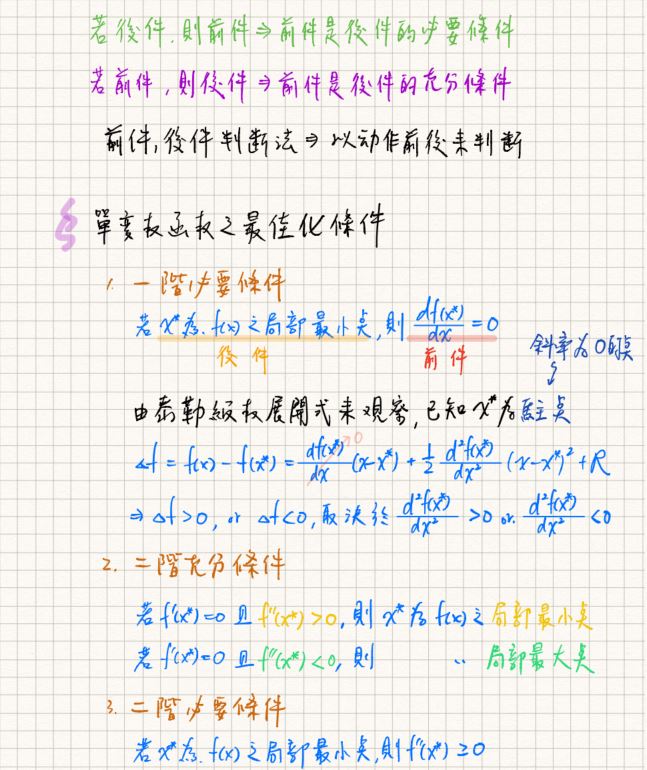 若後件,則前件⇒前件是後件的必要條件
若前件,則後件⇒前件是後件的充分條件
前件,後件判断法⇒以动作前後来判断
§ 單变数函数之最佳化條件
1. 一階必要條件
若 x*為 f(x) 之局部最小点,則 df(x*)/dx = 0
後件 前件
斜率為0的点
由泰勒級数展開式来观察,已知 x*為駐点
Δf = f(x) - f(x*) = df(x*)/dx (x-x*) + 1/2 d²f(x*)/dx² (x-x*)² + R
0
⇒ Δf>0, or Δf<0, 取決於 d²f(x*)/dx² >0 or d²f(x*)/dx² <0
2. 二階充分條件
若 f'(x*)=0 且 f''(x*)>0, 則 x*為 f(x) 之局部最小点
若 f'(x*)=0 且 f''(x*)<0, 則 〃 局部最大点
3. 二階必要條件
若 x*為 f(x) 之局部最小点,則 f''(x*) ≥0